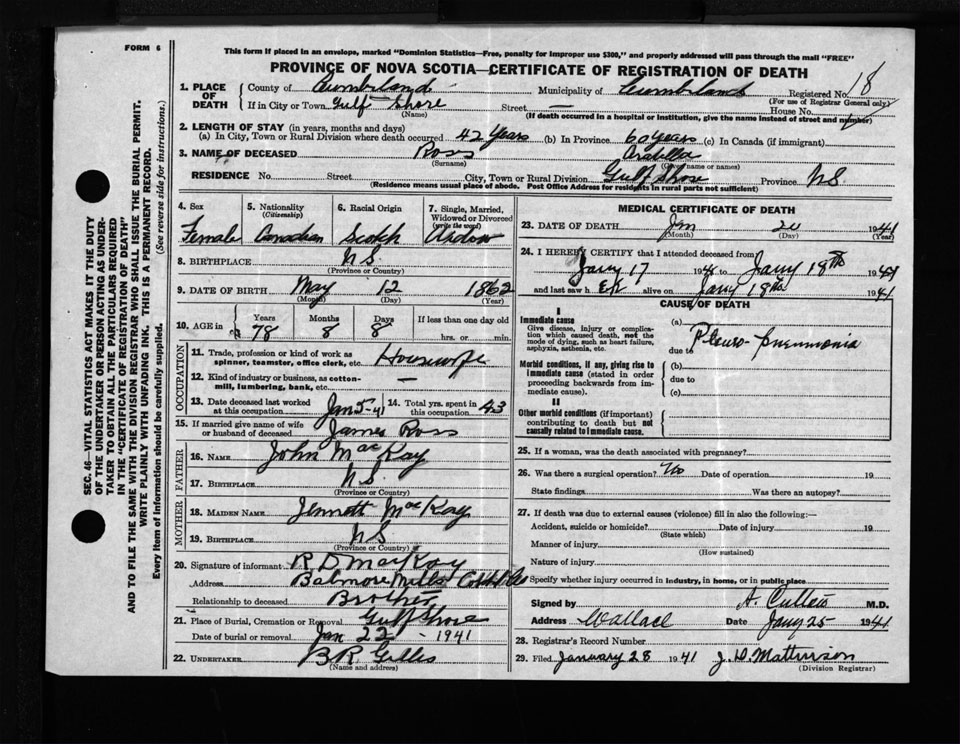 FORM 6
This form if placed in an envelope, marked "Dominion Statistics—Free, penalty for improper use $300," and properly addressed will pass through the mail "FREE"
PROVINCE OF NOVA SCOTIA—CERTIFICATE OF REGISTRATION OF DEATH
SEC. 46—VITAL STATISTICS ACT MAKES IT THE DUTY
OF THE UNDERTAKER OR PERSON ACTING AS UNDER-
TAKER TO OBTAIN ALL THE PARTICULARS REQUIRED
IN THE "CERTIFICATE OF REGISTRATION OF DEATH"
AND TO FILE THE SAME WITH THE DIVISION REGISTRAR WHO SHALL ISSUE THE BURIAL PERMIT.
WRITE PLAINLY WITH UNFADING INK. THIS IS A PERMANENT RECORD.
Every item of information should be carefully supplied. (See reverse side for instructions.)
1. PLACE OF DEATH
County of Cumberland Municipality of Cumberland Registered No. 18
(For use of Registrar General only)
If in City or Town Gulf Shore Street — House No.
(Name) (If death occurred in a hospital or institution, give the name instead of street and number)
2. LENGTH OF STAY (in years, months and days)
(a) In City, Town or Rural Division where death occurred 42 Years (b) In Province 60 years (c) In Canada (if immigrant)
3. NAME OF DECEASED Ross Arabella
(Surname) (Given name or names)
RESIDENCE No. Street City, Town or Rural Division Gulf Shore Province N.S.
(Residence means usual place of abode. Post Office Address for residents in rural parts not sufficient)
4. Sex
Female
5. Nationality
(Citizenship)
Canadian
6. Racial Origin
Scotch
7. Single, Married,
Widowed or Divorced
(write the word)
8. BIRTHPLACE N.S.
(Province or Country)
9. DATE OF BIRTH May 12 1862
(Month) (Day) (Year)
10. AGE in Years Months Days If less than one day old
78 8 8 hrs. or min.
OCCUPATION
11. Trade, profession or kind of work as
spinner, teamster, office clerk, etc. Housewife
12. Kind of industry or business, as cotton-
mill, lumbering, bank, etc. —
13. Date deceased last worked
at this occupation Jan 5-41
14. Total yrs. spent in
this occupation 43
15. If married give name of wife
or husband of deceased James Ross
FATHER
16. NAME John MacKay
17. BIRTHPLACE N.S.
(Province or Country)
MOTHER
18. MAIDEN NAME Jennett MacKay
19. BIRTHPLACE N.S.
(Province or Country)
20. Signature of informant R D MacKay
Address Balmore Mills Col Co NS
Relationship to deceased Brother
21. Place of Burial, Cremation or Removal Gulf Shore
Date of burial or removal Jan 22 - 1941
22. UNDERTAKER B R Gillis
(Name and address)
MEDICAL CERTIFICATE OF DEATH
23. DATE OF DEATH Jan 20 1941
(Month) (Day) (Year)
24. I HEREBY CERTIFY that I attended deceased from
Jany 17 1941 to Jany 18th 1941
and last saw h ER alive on Jany 18th 1941
CAUSE OF DEATH
I
Immediate cause
Give disease, injury or complica-
tion which caused death, not the
mode of dying, such as heart failure,
asphyxia, asthenia, etc.
(a)
Pleuro-pneumonia
due to
Morbid conditions, if any, giving rise to
immediate cause (stated in order
proceeding backwards from im-
mediate cause).
(b)
due to
(c)
II
Other morbid conditions (if important)
contributing to death but not
causally related to immediate cause.
25. If a woman, was the death associated with pregnancy?
26. Was there a surgical operation? No Date of operation 19
State findings Was there an autopsy?
27. If death was due to external causes (violence) fill in also the following:—
Accident, suicide or homicide? Date of injury 19
(State which)
Manner of injury
(How sustained)
Nature of injury
Specify whether injury occurred in industry, in home, or in public place
Signed by A. Cullen M.D.
Address Wallace Date Jany 25 1941
28. Registrar's Record Number
29. Filed January 28 1941 J. D. Mattinson
(Division Registrar)